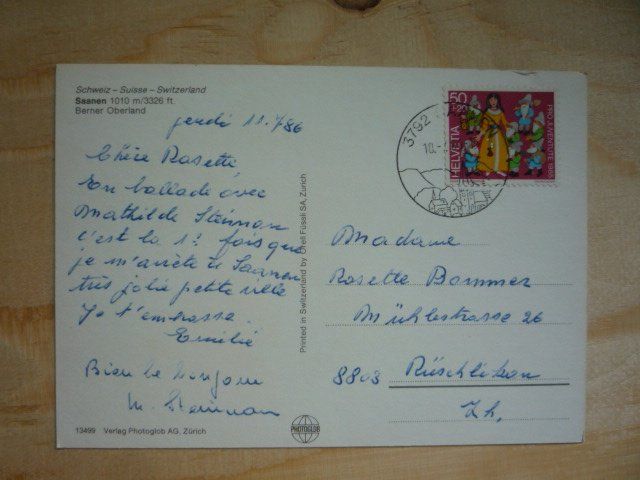 Schweiz – Suisse – Switzerland
Saanen 1010 m/3326 ft
Berner Oberland
jeudi 11.7.86
Chère Rosette
En ballade avec
Mathilde
c'est la 1º fois que
je m'arrète à Saanen
très jolie petite ville
Je t'embrasse
Emilie
Bien le bonjour
M.
13499 Verlag Photoglob AG, Zürich
Printed in Switzerland by Orell Füssli SA, Zürich
PHOTOGLOB
3792
10.
50
+20
HELVETIA
PRO JUVENTUTE 1985
Madame
Rosette Bommer
Mühlestrasse 26
8803 Rüschlikon
Zh.